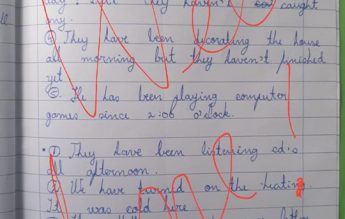 day. But they haven't caught
any.
④ They have been decorating the house
all morning but they haven't finished
yet
⑤. He has been playing computer
games since 2:00 o'clock.
• ① They have been listening cd's
all afternoon.
② We have turned on the heating
It was cold here